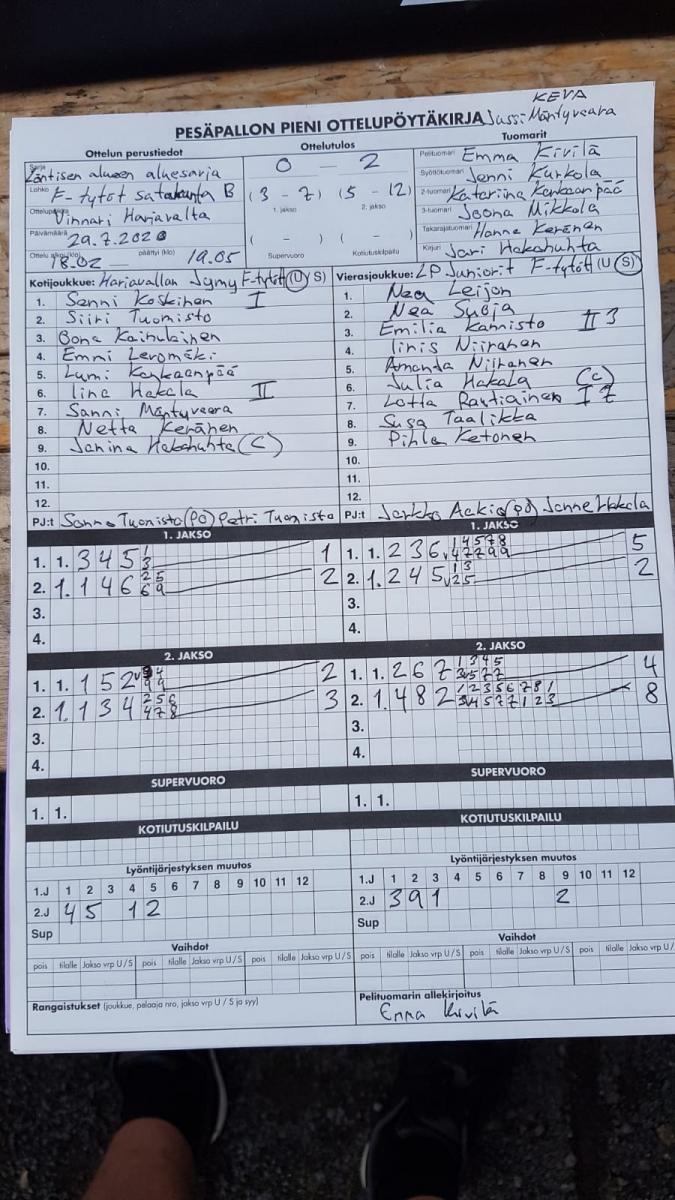 KEVA
PESÄPALLON PIENI OTTELUPÖYTÄKIRJA Jussi Mäntyvaara
Ottelun perustiedot
Ottelutulos
Tuomarit
Sarja Läntisen alueen aluesarja
Lohko F-tytöt satakunta B
Ottelupaikka Vinnari Harjavalta
Päivämäärä 29.7.2020
Ottelu alkoi (klo) 18.02 päättyi (klo) 19.05
0 - 2
(3 - 7) (5 - 12)
1. jakso 2. jakso
( - ) ( - )
Supervuoro Kotiutuskilpailu
Pelituomari Emma Kivilä
Syöttötuomari Jenni Kurkola
2-tuomari Katariina Kankaanpää
3-tuomari Joona Mikkola
Takarajatuomari Hanne Keränen
Kirjuri Jari Hakahuhta
Kotijoukkue: Harjavallan Jymy F-tytöt (U/S)
1. Sanni Koskinen I
2. Siiri Tuomisto
3. Bona Kainulainen
4. Emmi Leromäki
5. Lumi Kankaanpää
6. Iina Hakala II
7. Sanni Mäntyvaara
8. Netta Keränen
9. Janina Hakahuhta (C)
10.
11.
12.
PJ:t Sanna Tuomisto (PÖ) Petri Tuomisto
Vierasjoukkue: LP Juniorit F-tytöt (U/S)
1. Nea Leijon
2. Nea Suoja
3. Emilia Kannisto II 3
4. Iiris Niiranen
5. Amanda Niiranen
6. Julia Hakala (C)
7. Lotta Rautiainen I 7
8. Susa Taalikka
9. Pihla Ketonen
10.
11.
12.
PJ:t Jarkko Aakio (PÖ) Janne Hakala
1. JAKSO
1. 1. 3 4 5 1 3 1
2. 1. 1 4 6 2 5 6 9 2
3.
4.
1. JAKSO
1. 1. 2 3 6 v 1 4 5 7 8 4 7 2 9 9 5
2. 1. 2 4 5 v 1 3 2 5 2
3.
4.
2. JAKSO
1. 1. 1 5 2 v 2
2. 1. 1 3 4 2 5 6 4 7 8 3
3.
4.
2. JAKSO
1. 1. 2 6 7 1 3 4 5 3 v 5 7 7 4
2. 1. 4 8 2 1 2 3 5 6 7 8 1 3 v 4 5 7 7 1 2 3 8
3.
4.
SUPERVUORO
1. 1.
SUPERVUORO
1. 1.
KOTIUTUSKILPAILU
KOTIUTUSKILPAILU
Lyöntijärjestyksen muutos
1.J 1 2 3 4 5 6 7 8 9 10 11 12
2.J 4 5 1 2
Sup
Lyöntijärjestyksen muutos
1.J 1 2 3 4 5 6 7 8 9 10 11 12
2.J 3 9 1 2
Sup
Vaihdot
pois tilalle Jakso vrp U/S pois tilalle Jakso vrp U/S pois tilalle Jakso vrp U/S
Rangaistukset (joukkue, pelaaja nro, jakso vrp U / S ja syy)
Vaihdot
pois tilalle Jakso vrp U/S pois tilalle Jakso vrp U/S pois tilalle Jakso vrp U/
Pelituomarin allekirjoitus
Emma Kivilä